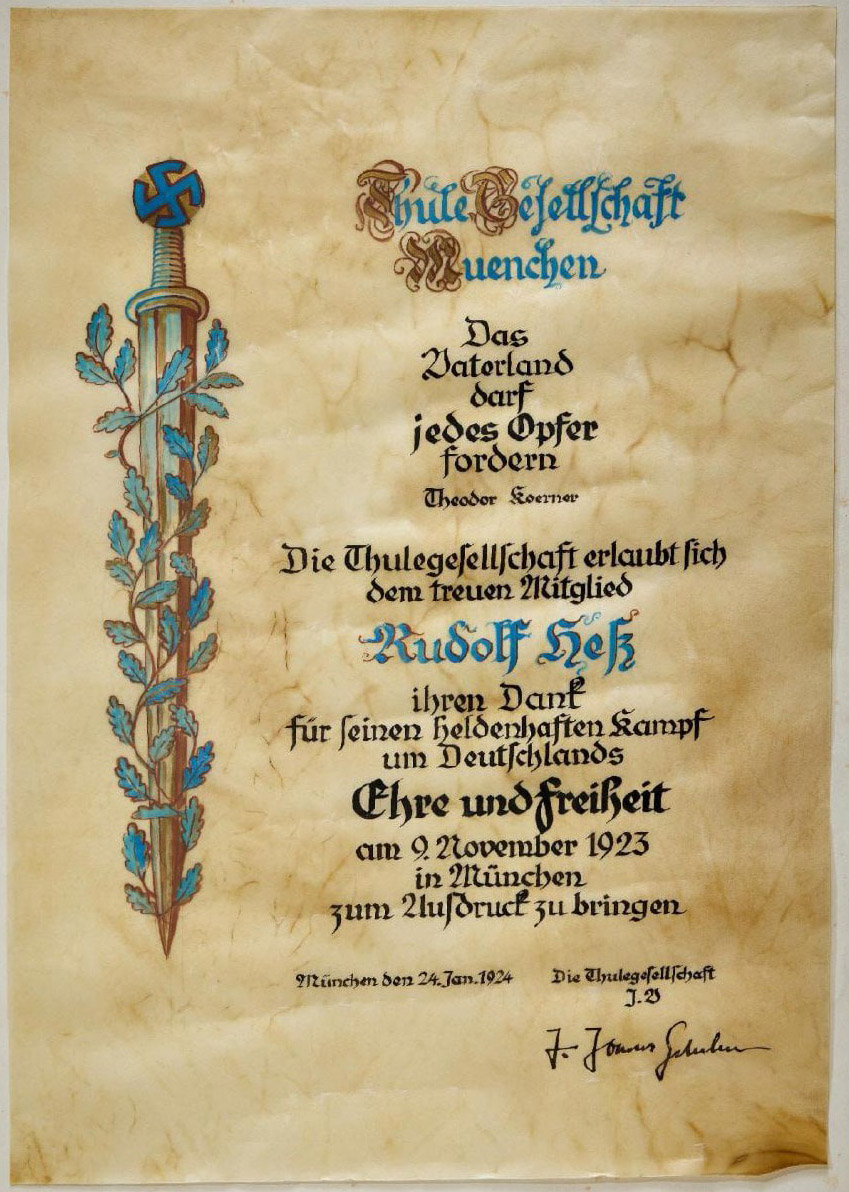 Thule Gesellschaft
Muenchen
Das
Vaterland
darf
jedes Opfer
fordern
Theodor Koerner
Die Thulegesellschaft erlaubt sich
dem treuen Mitglied
Rudolf Heß
ihren Dank
für seinen heldenhaften Kampf
um Deutschlands
Ehre und Freiheit
am 9. November 1923
in München
zum Ausdruck zu bringen
München den 24. Jan. 1924 Die Thulegesellschaft
J. V